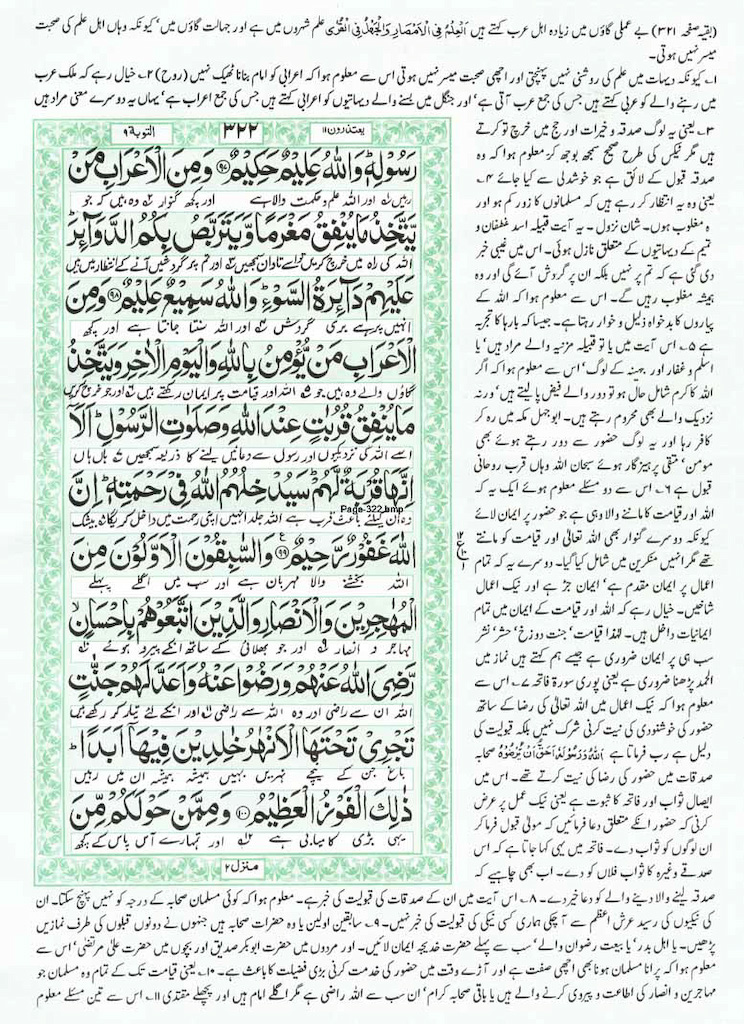 (بقیہ صفحہ ۳۲۱) بے عملی گاؤں میں زیادہ اہل عرب کہتے ہیں اَلْعِلْمُ فِی الْاَمْصَارِ وَالْجَہْلُ فِی الْقُرٰی علم شہروں میں ہے اور جہالت گاؤں میں' کیونکہ وہاں اہل علم کی صحبت
میسر نہیں ہوتی۔
۱۔ کیونکہ دیہات میں علم کی روشنی نہیں پہنچتی اور اچھی صحبت میسر نہیں ہوتی اس سے معلوم ہوا کہ اعرابی کو امام بنانا ٹھیک نہیں (روح) ۲۔ خیال رہے کہ ملک عرب
میں رہنے والے کو عربی کہتے ہیں جس کی جمع عرب آتی ہے' اور جنگل میں بسنے والے دیہاتیوں کو اعرابی کہتے ہیں جس کی جمع اعراب ہے' یہاں یہ دوسرے معنی مراد ہیں
۳۔ یعنی یہ لوگ صدقہ و خیرات اور حج میں خرچ تو کرتے
ہیں مگر ٹیکس کی طرح صحیح سمجھ بوجھ کر معلوم ہوا کہ وہ
صدقہ قبول کے لائق ہے جو خوشدلی سے کیا جائے ۴۔
یعنی وہ یہ انتظار کر رہے ہیں کہ مسلمانوں کا زور کم ہو اور
ہ مغلوب ہوں۔ شان نزول۔ یہ آیت قبیلہ اسد غطفان و
تمیم کے دیہاتیوں کے متعلق نازل ہوئی۔ اس میں غیبی خبر
دی گئی ہے کہ تم پر نہیں بلکہ ان پر گردش آئے گی اور وہ
ہمیشہ مغلوب رہیں گے۔ اس سے معلوم ہوا کہ اللہ کے
پیاروں کا بدخواہ ذلیل و خوار رہتا ہے۔ جیسا کہ بارہا کا تجربہ
ہے ۵۔ اس آیت میں یا تو قبیلہ مزنیہ والے مراد ہیں' یا
اسلم و غفار اور جہینہ کے لوگ' اس سے معلوم ہوا کہ اگر
اللہ کا کرم شامل حال ہو تو دور والے فیض پا لیتے ہیں' ورنہ
نزدیک والے بھی محروم رہتے ہیں۔ ابوجہل مکہ میں رہ کر
کافر رہا اور یہ لوگ حضور سے دور رہتے ہوئے بھی
مومن' متقی پرہیزگار ہوئے سبحان اللہ وہاں قرب روحانی
قبول ہے ۶۔ اس سے دو مسئلے معلوم ہوئے ایک یہ کہ
اللہ اور قیامت کا ماننے والا وہی ہے جو حضور پر ایمان لائے
کیونکہ دوسرے گنوار بھی اللہ تعالی اور قیامت کو مانتے
تھے مگر انہیں منکرین میں شامل کیا گیا۔ دوسرے یہ کہ تمام
اعمال پر ایمان مقدم ہے' ایمان جڑ ہے اور نیک اعمال
شاخیں۔ خیال رہے کہ اللہ اور قیامت کے ایمان میں تمام
ایمانیات داخل ہیں۔ لہٰذا قیامت' جنت دوزخ' حشر' نشر
سب ہی پر ایمان ضروری ہے جیسے ہم کہتے ہیں نماز میں
الحمد پڑھنا ضروری ہے یعنی پوری سورۃ فاتحہ ۷۔ اس سے
معلوم ہوا کہ نیک اعمال میں اللہ تعالی کی رضا کے ساتھ
حضور کی خوشنودی کی نیت کرنی شرک نہیں بلکہ قبولیت کی
دلیل ہے رب فرماتا ہے اَللّٰہُ وَرَسُوْلُہٗ اَحَقُّ اَنْ یُّرْضُوْہُ صحابہ
صدقات میں حضور کی رضا کی نیت کرتے تھے۔ اس میں
ایصال ثواب اور فاتحہ کا ثبوت ہے یعنی نیک عمل پر عرض
کرنی کہ حضور انکے متعلق دعا فرمائیں کہ مولی قبول فرما کر
ان لوگوں کو ثواب دے۔ فاتحہ میں یہی کہا جاتا ہے کہ اس
صدقے وغیرہ کا ثواب فلاں کو دے۔ اب بھی چاہیے کہ
یعتذرون ۱۱
۳۲۲
التوبۃ ۹
رَسُوْلِهٖ وَاللّٰهُ عَلِيْمٌ حَكِيْمٌ ۹۷ وَمِنَ الْاَعْرَابِ مَنْ
رہیں اور اللہ علم و حکمت والا ہے اور کچھ گنوار وہ ہیں کہ جو
يَّتَّخِذُ مَا يُنْفِقُ مَغْرَمًا وَّيَتَرَبَّصُ بِكُمُ الدَّوَآئِرَ
اللہ کی راہ میں خرچ کریں تو اسے تاوان سمجھیں اور تم پر گردشیں آنے کے انتظار میں رہیں
عَلَيْهِمْ دَآئِرَةُ السَّوْءِ وَاللّٰهُ سَمِيْعٌ عَلِيْمٌ ۹۸ وَمِنَ
انہیں پر ہے بری گردش اور اللہ سنتا جانتا ہے اور کچھ
الْاَعْرَابِ مَنْ يُّؤْمِنُ بِاللّٰهِ وَالْيَوْمِ الْاٰخِرِ وَيَتَّخِذُ
گاؤں والے وہ ہیں جو اللہ اور قیامت پر ایمان رکھتے ہیں اور جو خرچ کریں
مَا يُنْفِقُ قُرُبٰتٍ عِنْدَ اللّٰهِ وَصَلَوٰتِ الرَّسُوْلِ اَلَآ
اسے اللہ کی نزدیکیوں اور رسول سے دعائیں لینے کا ذریعہ سمجھیں ہاں ہاں
اِنَّهَا قُرْبَةٌ لَّهُمْ سَيُدْخِلُهُمُ اللّٰهُ فِيْ رَحْمَتِهٖ اِنَّ
وہ ان کیلئے باعث قرب ہے اللہ جلد انہیں اپنی رحمت میں داخل کریگا بیشک
Page-322.bmp
اللّٰهَ غَفُوْرٌ رَّحِيْمٌ ۹۹ وَالسّٰبِقُوْنَ الْاَوَّلُوْنَ مِنَ
اللہ بخشنے والا مہربان ہے اور سب میں اگلے پہلے
الْمُهٰجِرِيْنَ وَالْاَنْصَارِ وَالَّذِيْنَ اتَّبَعُوْهُمْ بِاِحْسَانٍ
مہاجر و انصار اور جو بھلائی کے ساتھ انکے پیرو ہوئے
رَّضِيَ اللّٰهُ عَنْهُمْ وَرَضُوْا عَنْهُ وَاَعَدَّ لَهُمْ جَنّٰتٍ
اللہ ان سے راضی اور وہ اللہ سے راضی اور انکے لئے تیار کر رکھے ہیں
تَجْرِيْ تَحْتَهَا الْاَنْهٰرُ خٰلِدِيْنَ فِيْهَآ اَبَدًا
باغ جن کے نیچے نہریں بہیں ہمیشہ ہمیشہ ان میں رہیں
ذٰلِكَ الْفَوْزُ الْعَظِيْمُ ۱۰۰ وَمِمَّنْ حَوْلَكُمْ مِّنَ
یہی بڑی کامیابی ہے اور تمہارے آس پاس کے کچھ
منزل ۲
صدقہ لینے والا دینے والے کو دعا خیر دے۔ ۸۔ اس آیت میں ان کے صدقات کی قبولیت کی خبر ہے۔ معلوم ہوا کہ کوئی مسلمان صحابہ کے درجہ کو نہیں پہنچ سکتا۔ ان
کی نیکیوں کی رسید عرش اعظم سے آچکی ہماری کسی نیکی کی قبولیت کی خبر نہیں۔ ۹۔ سابقین اولین یا وہ حضرات صحابہ ہیں جنہوں نے دونوں قبلوں کی طرف نمازیں
پڑھیں۔ یا اہل بدر' یا بیعت رضوان والے' سب سے پہلے حضرت خدیجہ ایمان لائیں۔ اور مردوں میں حضرت ابوبکر صدیق اور بچوں میں حضرت علی مرتضی' اس سے
معلوم ہوا کہ پرانا مسلمان ہونا بھی اچھی صفت ہے اور آڑے وقت میں حضور کی خدمت کرنی بڑی فضیلت کا باعث ہے۔ ۱۰۔ یعنی قیامت تک کے تمام وہ مسلمان جو
مہاجرین و انصار کی اطاعت و پیروی کرنے والے ہیں یا باقی صحابہ کرام' ان سب سے اللہ راضی ہے مگر اگلے امام ہیں اور پچھلے مقتدی ۱۱۔ اس سے تین مسئلے معلوم